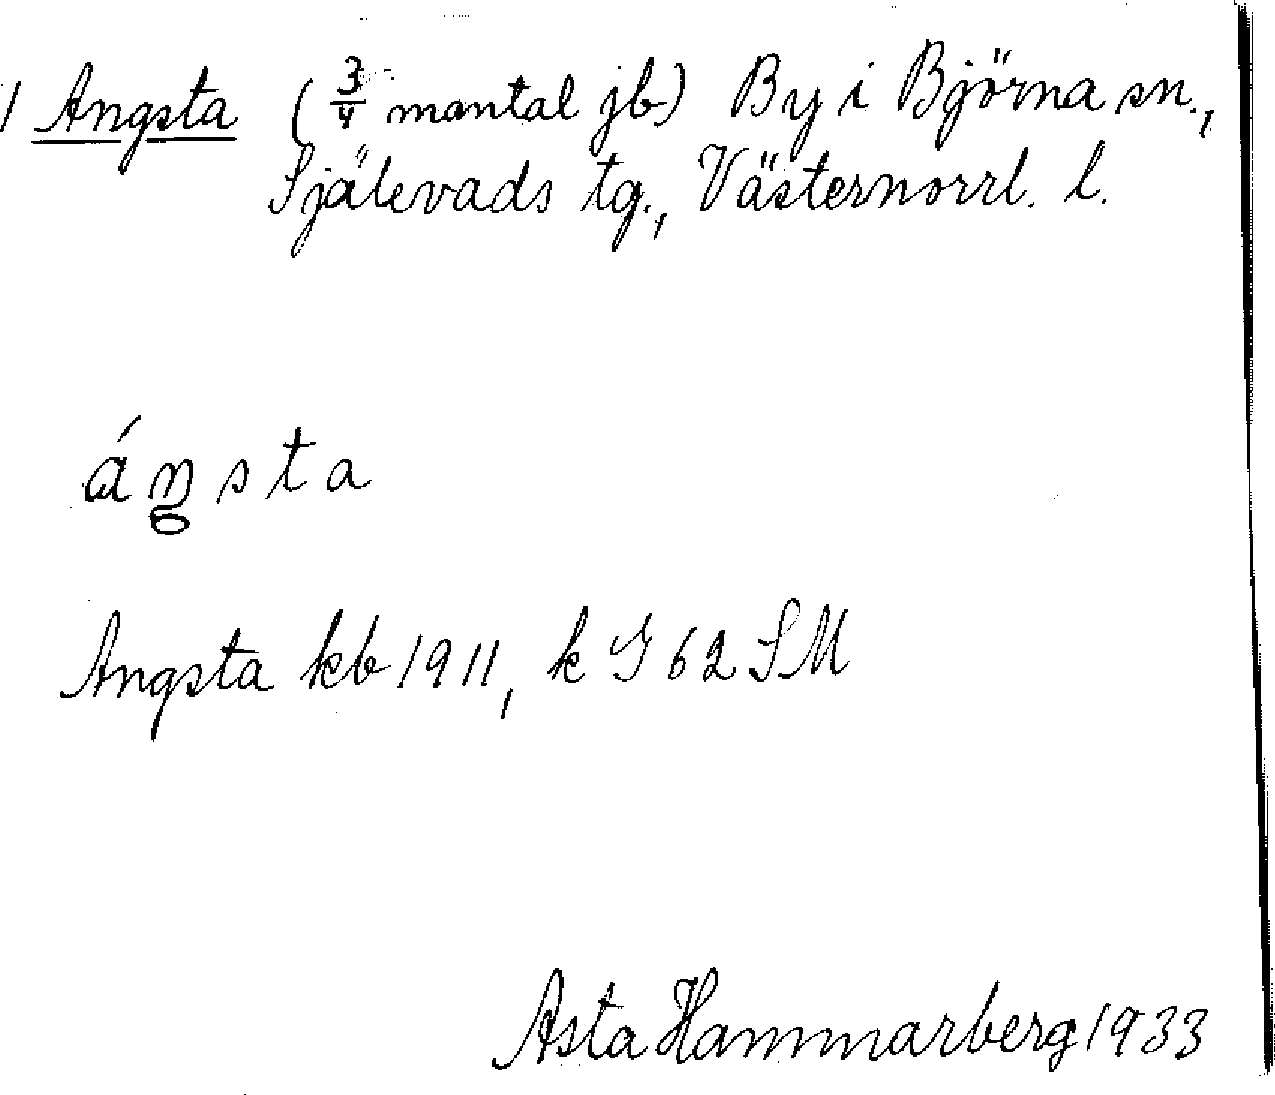 1 Angsta (3/4 mantal jb) By i Björna sn.,
Själevads tg., Västernorrl. l.
áŋsta
Angsta kb 1911, k G 62 SM
Asta Hammarberg 1933